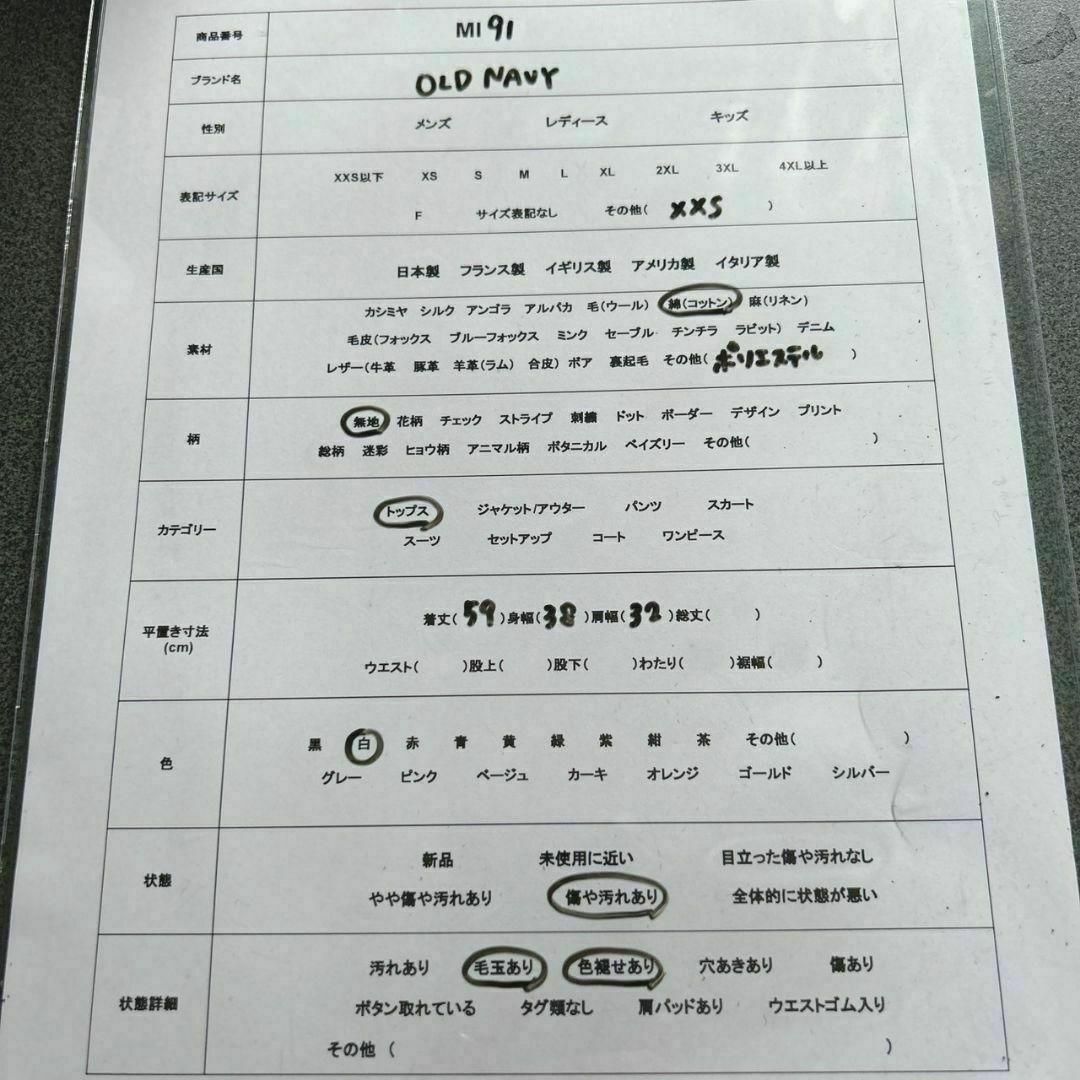 商品番号 MI 91
ブランド名 OLD NAVY
性別 メンズ レディース キッズ
表記サイズ XXS以下 XS S M L XL 2XL 3XL 4XL以上
F サイズ表記なし その他( XXS )
生産国 日本製 フランス製 イギリス製 アメリカ製 イタリア製
素材 カシミヤ シルク アンゴラ アルパカ 毛(ウール) 綿(コットン) 麻(リネン)
毛皮(フォックス ブルーフォックス ミンク セーブル チンチラ ラビット) デニム
レザー(牛革 豚革 羊革(ラム) 合皮) ボア 裏起毛 その他( ポリエステル )
柄 無地 花柄 チェック ストライプ 刺繍 ドット ボーダー デザイン プリント
総柄 迷彩 ヒョウ柄 アニマル柄 ボタニカル ペイズリー その他( )
カテゴリー トップス ジャケット/アウター パンツ スカート
スーツ セットアップ コート ワンピース
平置き寸法 着丈( 59 )身幅( 38 )肩幅( 32 )総丈( )
(cm) ウエスト( )股上( )股下( )わたり( )裾幅( )
色 黒 白 赤 青 黄 緑 紫 紺 茶 その他( )
グレー ピンク ベージュ カーキ オレンジ ゴールド シルバー
状態 新品 未使用に近い 目立った傷や汚れなし
やや傷や汚れあり 傷や汚れあり 全体的に状態が悪い
状態詳細 汚れあり 毛玉あり 色褪せあり 穴あきあり 傷あり
ボタン取れている タグ類なし 肩パッドあり ウエストゴム入り
その他 ( )